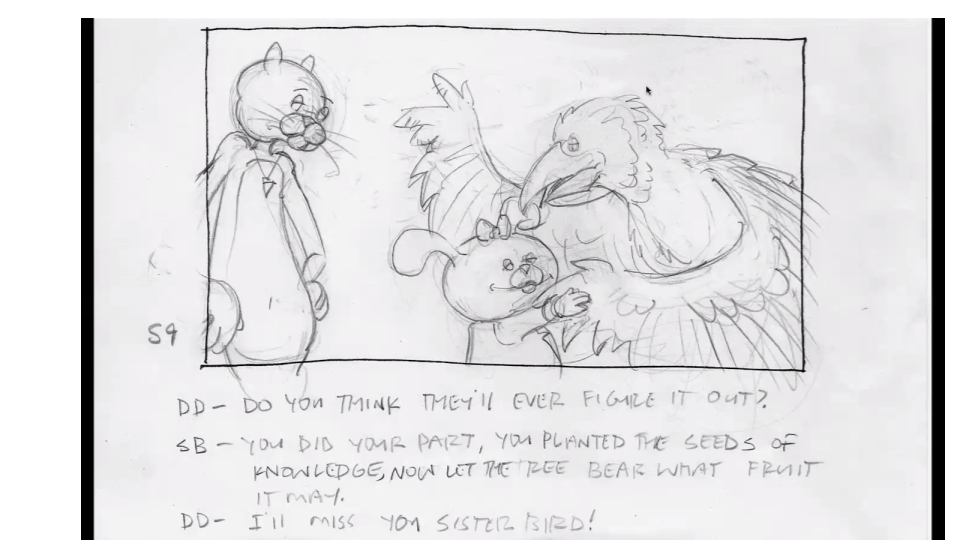 59
DD- DO YOU THINK THEY'll EVER FIGURE IT OUT?
SB- YOU DID YOUR PART, YOU PLANTED THE SEEDS OF
KNOWLEDGE, NOW LET THE TREE BEAR WHAT FRUIT
IT MAY.
DD- I'll MISS YOU SISTER BIRD!